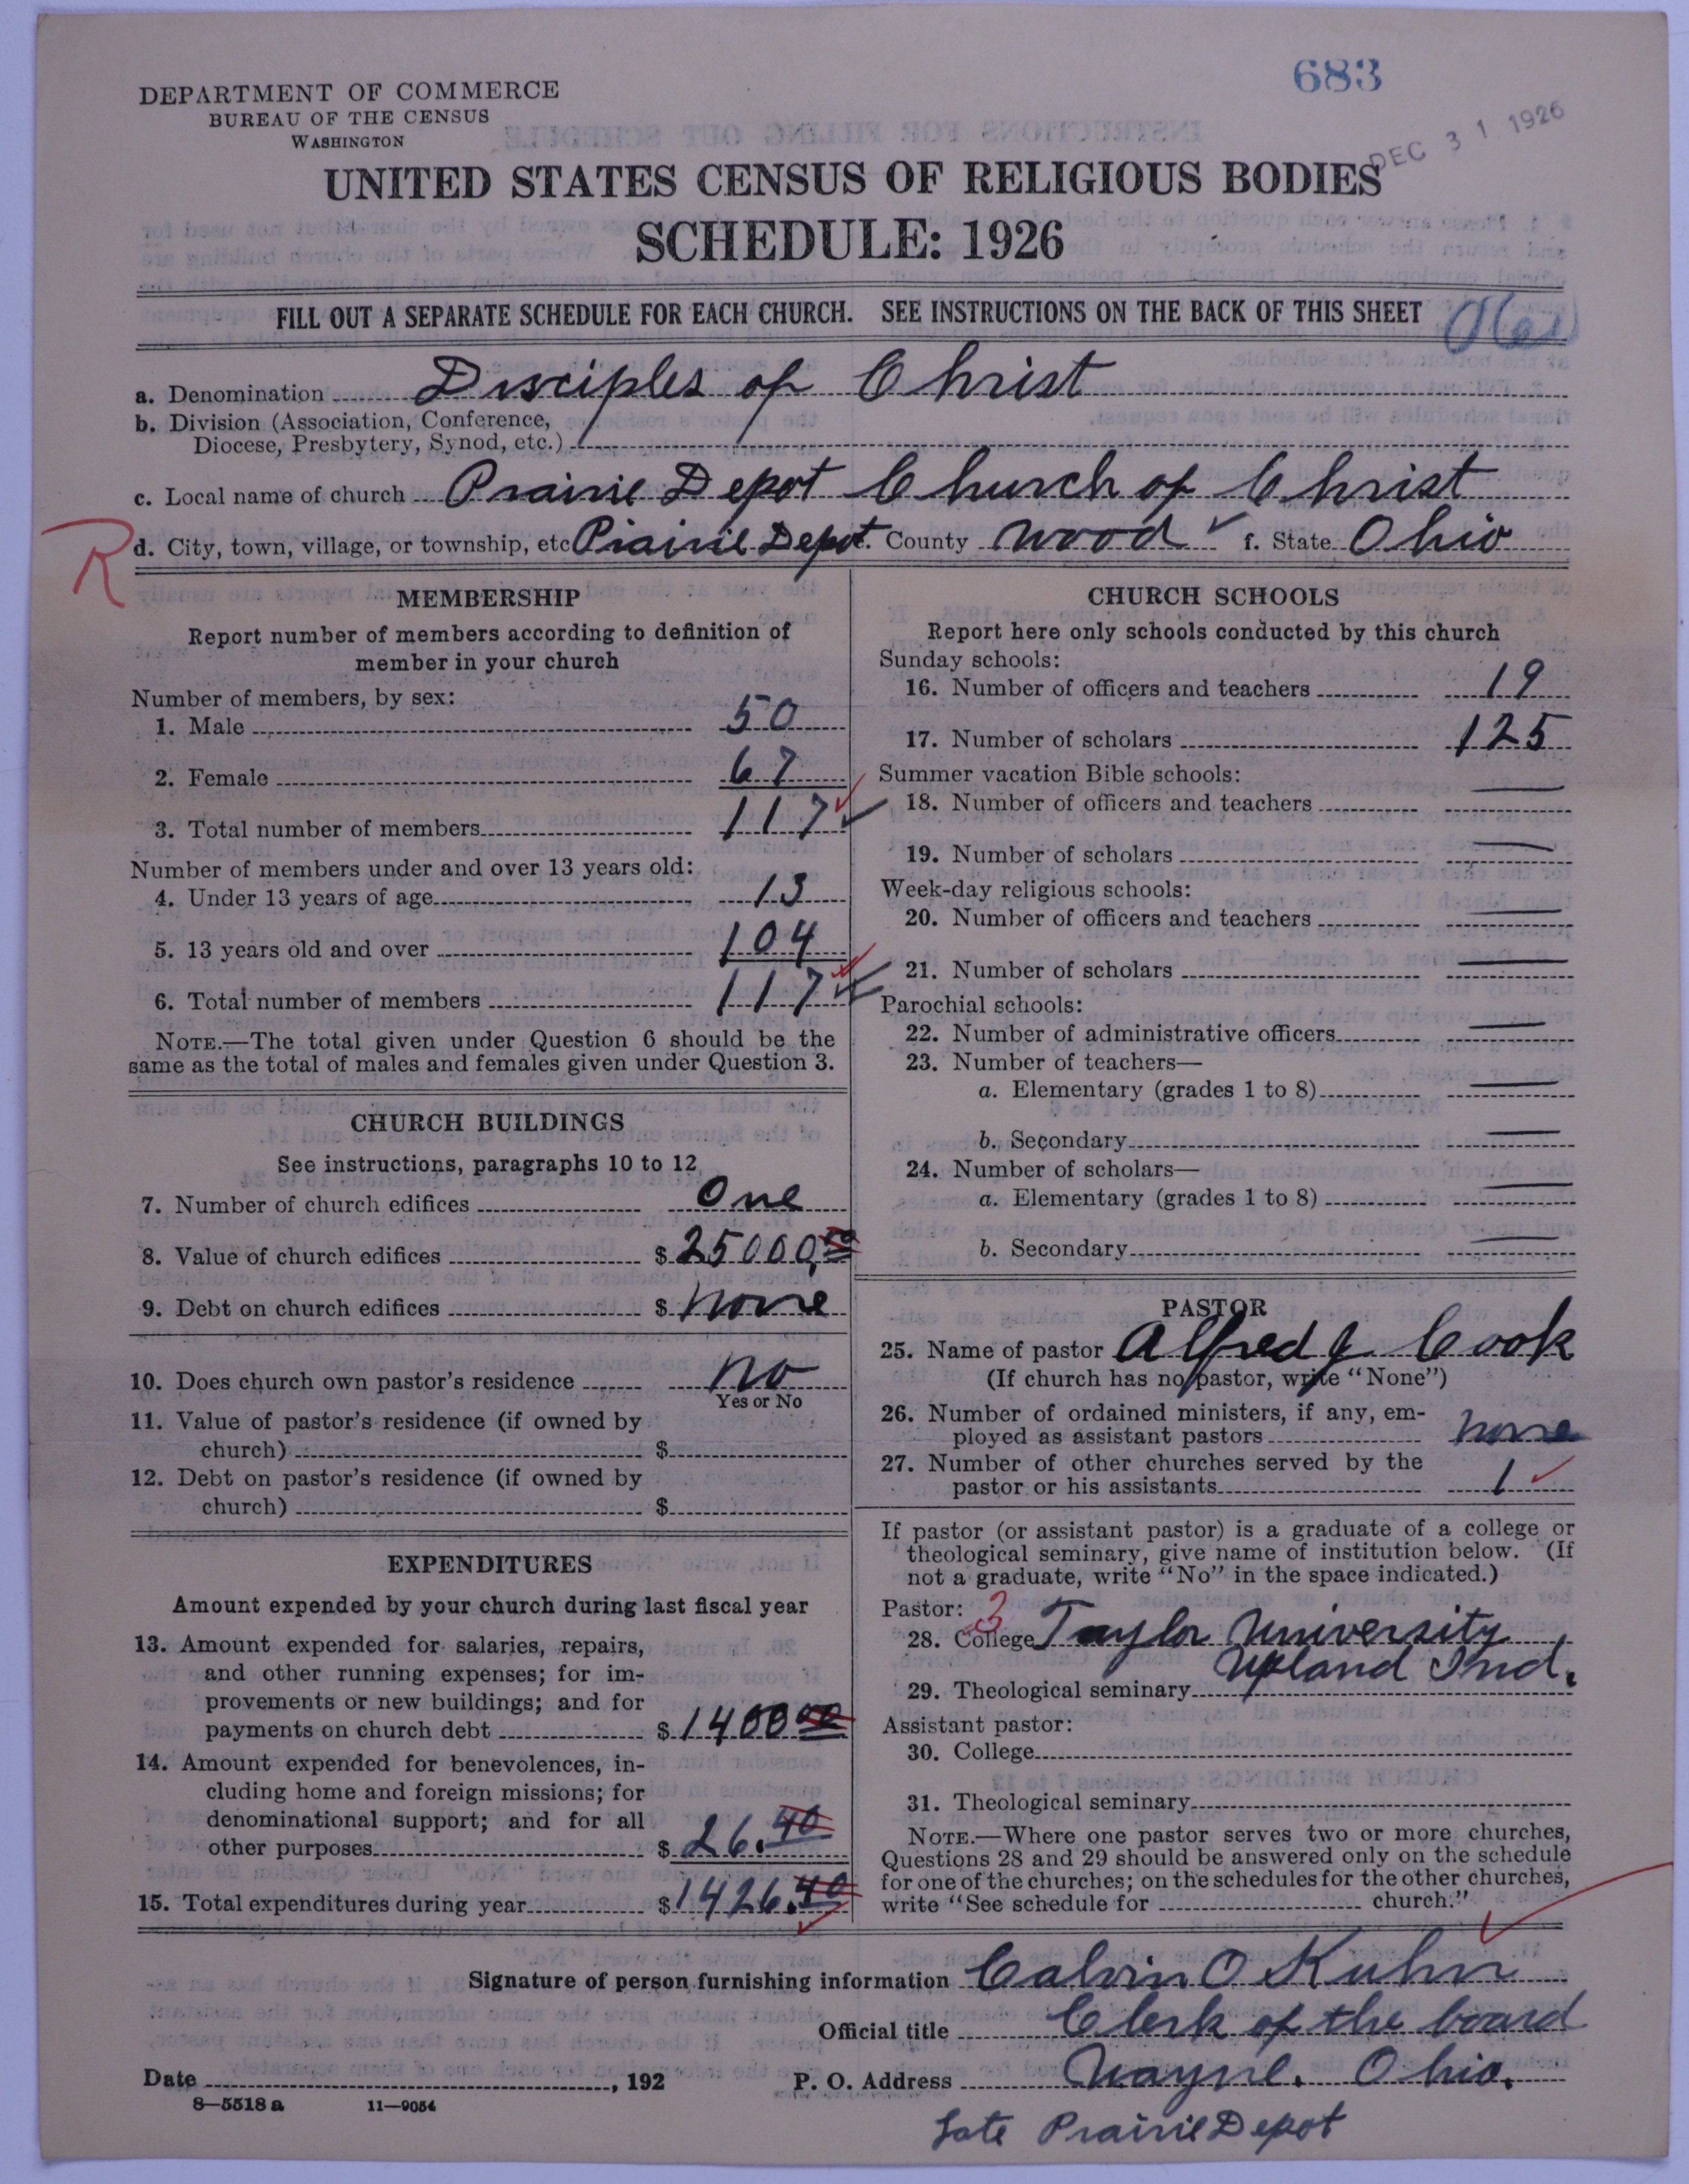 683
DEC 31 1926
DEPARTMENT OF COMMERCE
BUREAU OF THE CENSUS
WASHINGTON
UNITED STATES CENSUS OF RELIGIOUS BODIES
SCHEDULE: 1926
FILL OUT A SEPARATE SCHEDULE FOR EACH CHURCH. SEE INSTRUCTIONS ON THE BACK OF THIS SHEET
a. Denomination Disciples of Christ
b. Division (Association, Conference,
Diocese, Presbytery, Synod, etc.)
c. Local name of church Prairie Depot Church of Christ
R d. City, town, village, or township, etc Prairie Depot e. County Wood f. State Ohio
MEMBERSHIP
Report number of members according to definition of
member in your church
Number of members, by sex:
1. Male 50
2. Female 67
3. Total number of members 117
Number of members under and over 13 years old:
4. Under 13 years of age 13
5. 13 years old and over 104
6. Total number of members 117
NOTE.—The total given under Question 6 should be the
same as the total of males and females given under Question 3.
CHURCH BUILDINGS
See instructions, paragraphs 10 to 12
7. Number of church edifices One
8. Value of church edifices $ 25000.00
9. Debt on church edifices $ None
10. Does church own pastor's residence No
Yes or No
11. Value of pastor's residence (if owned by
church) $
12. Debt on pastor's residence (if owned by
church) $
EXPENDITURES
Amount expended by your church during last fiscal year
13. Amount expended for salaries, repairs,
and other running expenses; for im-
provements or new buildings; and for
payments on church debt $ 1400 00
14. Amount expended for benevolences, in-
cluding home and foreign missions; for
denominational support; and for all
other purposes $ 26.40
15. Total expenditures during year $ 1426.40
CHURCH SCHOOLS
Report here only schools conducted by this church
Sunday schools:
16. Number of officers and teachers 19
17. Number of scholars 125
Summer vacation Bible schools:
18. Number of officers and teachers
19. Number of scholars
Week-day religious schools:
20. Number of officers and teachers
21. Number of scholars
Parochial schools:
22. Number of administrative officers
23. Number of teachers—
a. Elementary (grades 1 to 8)
b. Secondary
24. Number of scholars—
a. Elementary (grades 1 to 8)
b. Secondary
PASTOR
25. Name of pastor Alfred J Cook
(If church has no pastor, write "None")
26. Number of ordained ministers, if any, em-
ployed as assistant pastors None
27. Number of other churches served by the
pastor or his assistants 1
If pastor (or assistant pastor) is a graduate of a college or
theological seminary, give name of institution below. (If
not a graduate, write "No" in the space indicated.)
Pastor: 3
28. College Taylor University
Upland Ind.
29. Theological seminary
Assistant pastor:
30. College
31. Theological seminary
NOTE.—Where one pastor serves two or more churches,
Questions 28 and 29 should be answered only on the schedule
for one of the churches; on the schedules for the other churches,
write "See schedule for church."
Signature of person furnishing information Calvin O Kuhn
Official title Clerk of the board
Date , 192 P. O. Address Wayne. Ohio.
8—5518 a 11—9054
Late Prairie Depot